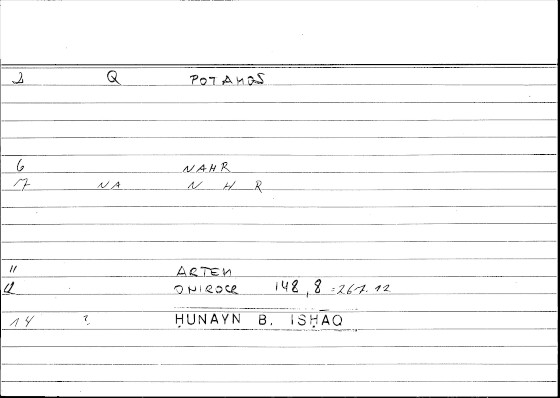 2 Q POTAMOS
6 NAHR
7 NA N H R
11 ARTEM
12 ONIROCR 148,8 = 267.12
14 ? ḤUNAYN B. ISḤĀQ